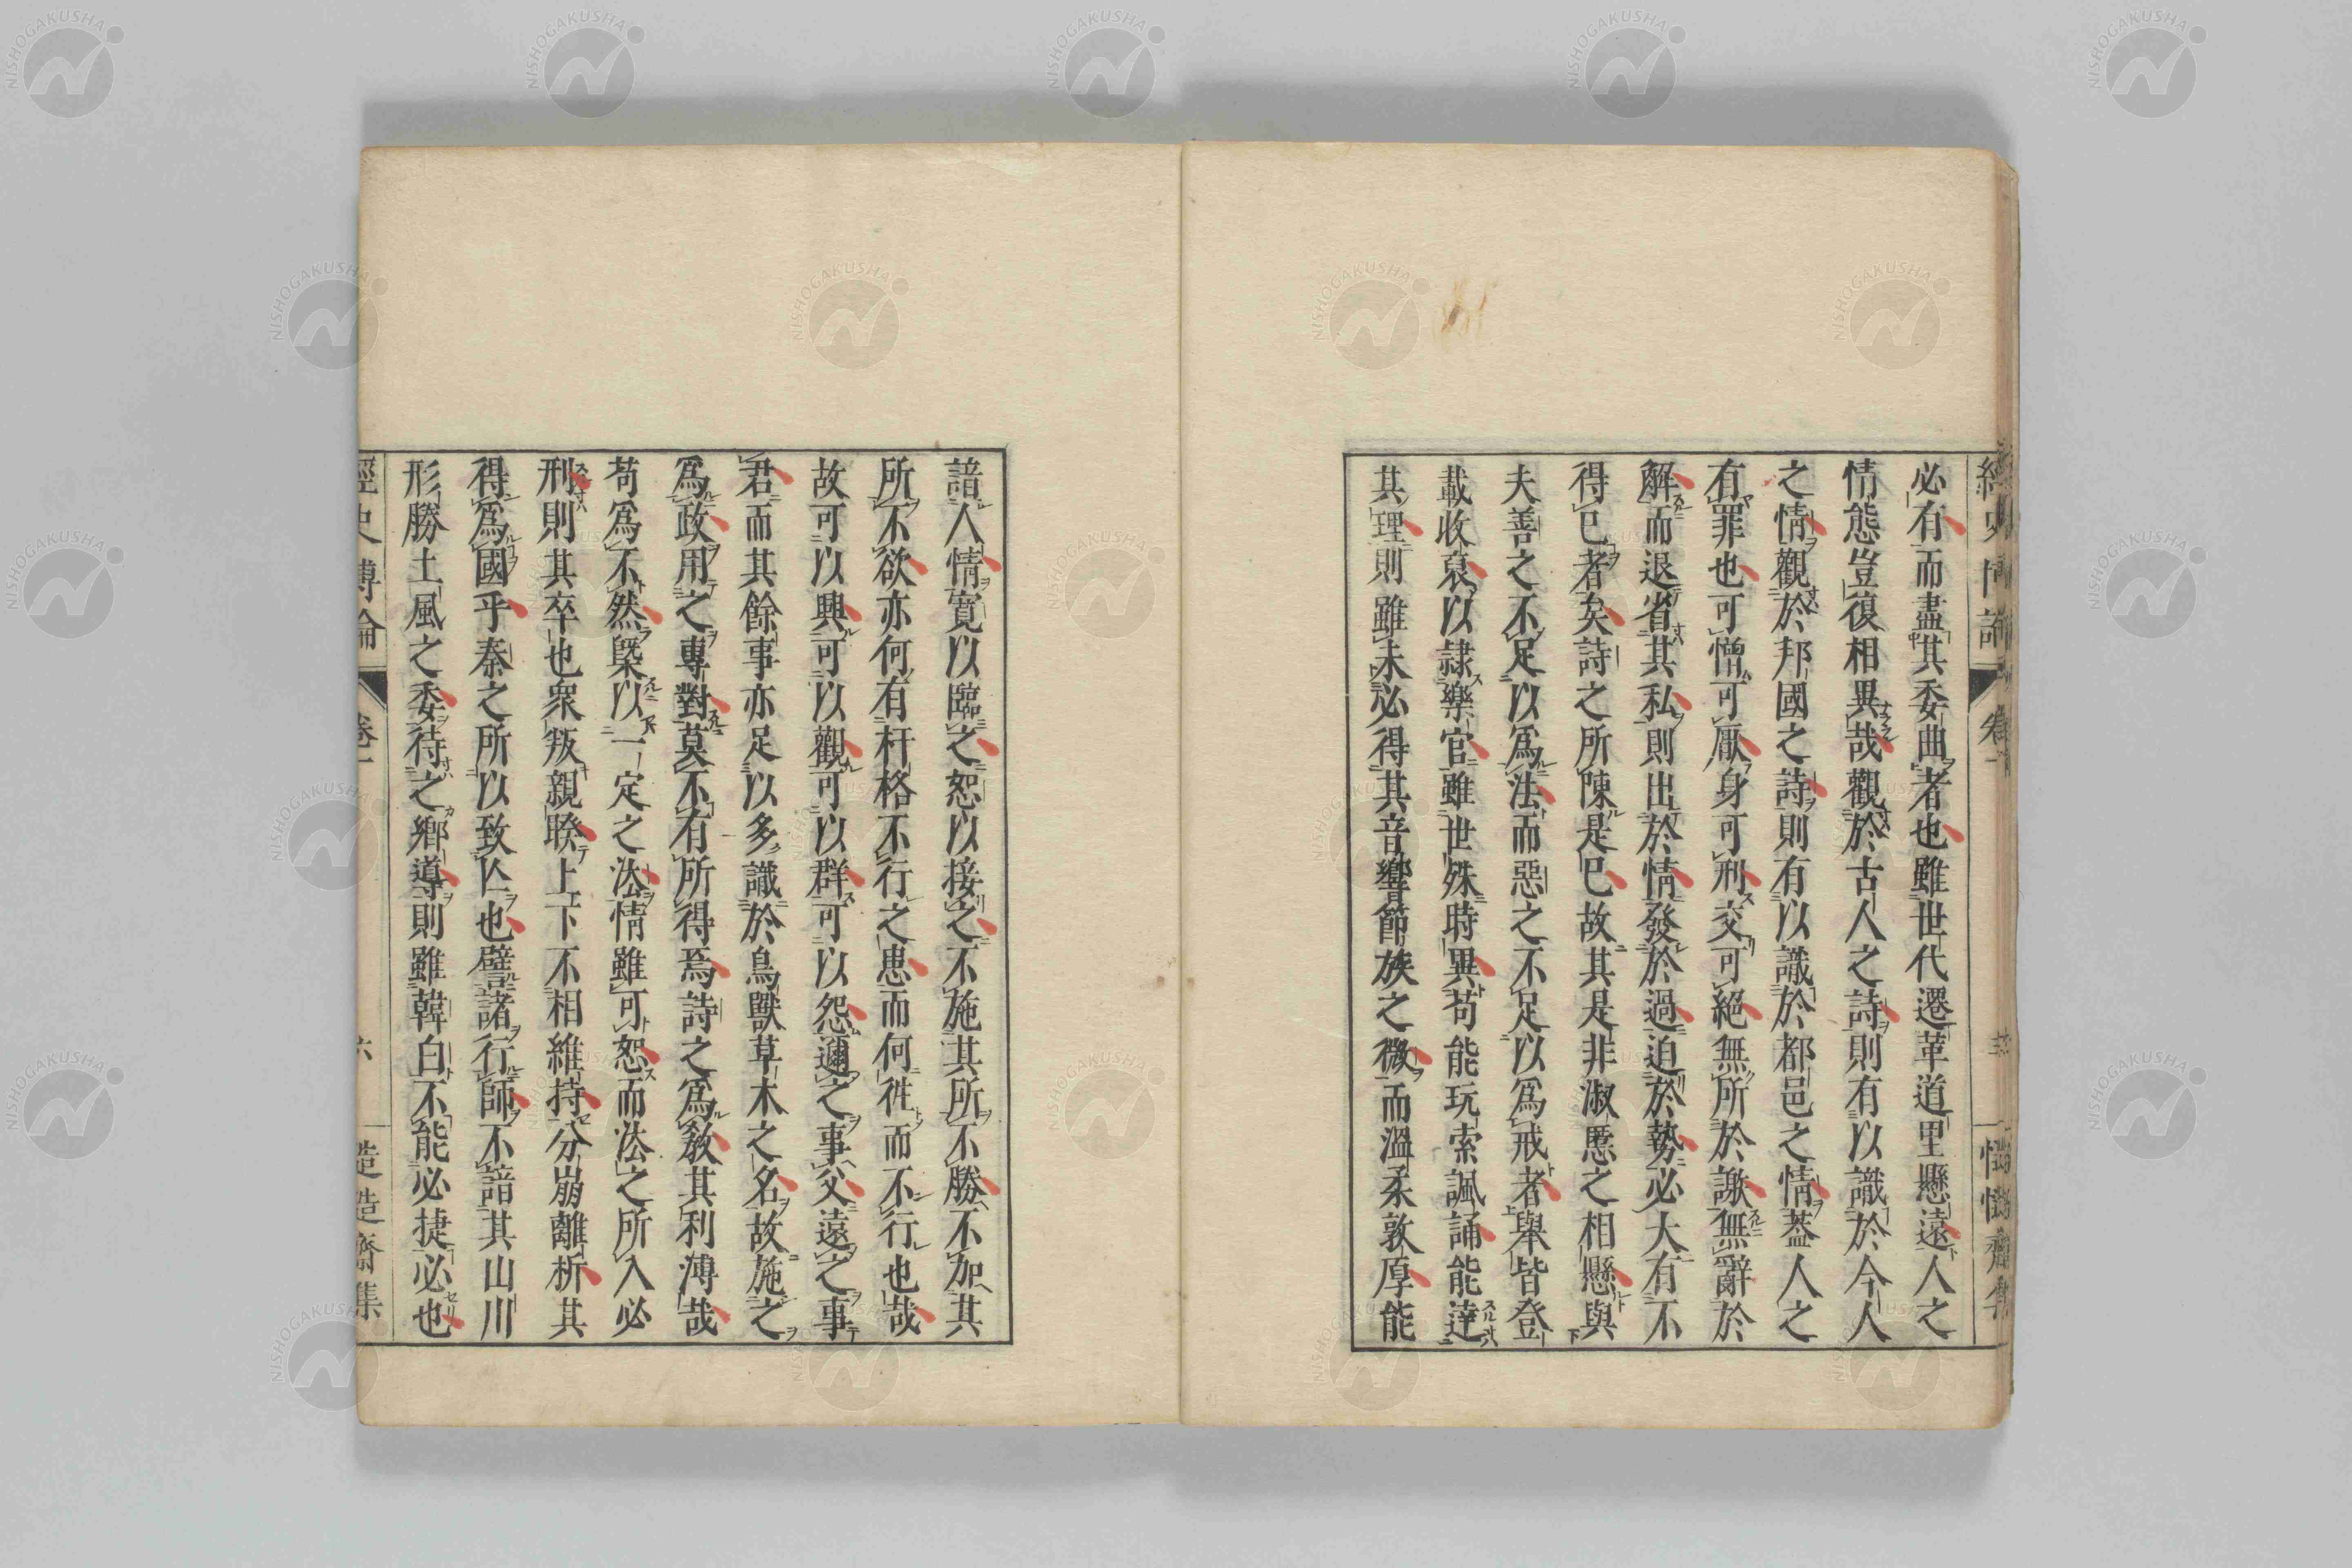 必有而盡其委曲者也雖世代遷革道里懸遠人之
情態豈復相異哉觀於古人之詩則有以識於今人
之情觀於邦國之詩則有以識於都邑之情葢人之
有罪也可憎可厭身可刑交可絕無所於譤無辭於
解而退省其私則出於情發於過迫於勢必大有不
得已者矣詩之所陳是已故其是非淑慝之相懸與
夫善之不足以爲法而惡之不足以爲戒者舉皆登
載收裒以隷樂官雖世殊時異苟能玩索諷誦能達
其理則雖未必得其音響節族之微而溫柔敦厚能
諳人情寛以臨之恕以接之不施其所不勝不加其
所不欲亦何有杆格不行之患而何徃而不行也哉
故可以興可以觀可以群可以怨邇之事父遠之事
君而其餘事亦足以多識於鳥獸草木之名故施之
爲政用之專對莫不有所得焉詩之爲敎其利溥哉
苟爲不然槩以一定之法情雖可恕而法之所入必
刑則其卒也衆叛親睽上下不相維持分崩離析其
得爲國乎秦之所以致亾也譬諸行師不諳其山川
形勝土風之委待之鄕導則雖韓白不能必捷必也
經史博論
卷一
六
造造齋集
NISHOGAKUSHA